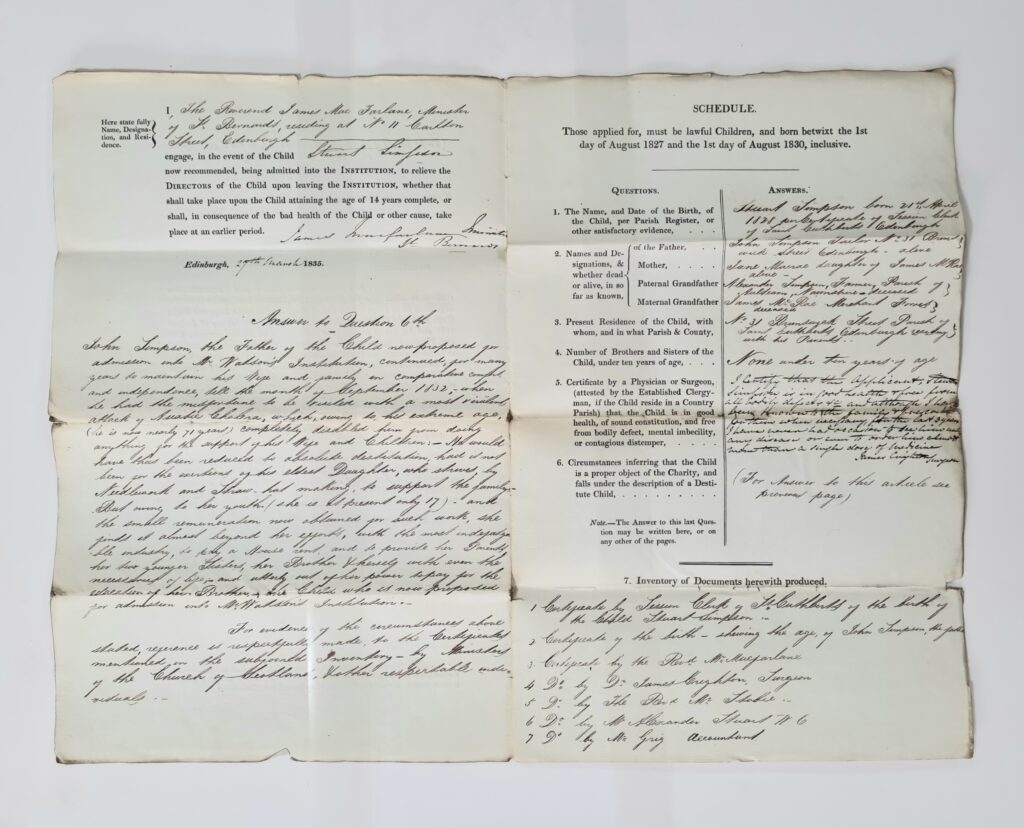 Here state fully
Name, Designa-
tion, and Resi-
dence.
I, The Reverend James Mac Farlane, Minister
of St. Bernards, residing at No 11 Carlton
Street, Edinburgh
engage, in the event of the Child Stuart Simpson
now recommended, being admitted into the INSTITUTION, to relieve the
DIRECTORS of the Child upon leaving the INSTITUTION, whether that
shall take place upon the Child attaining the age of 14 years complete, or
shall, in consequence of the bad health of the Child or other cause, take
place at an earlier period.
James Macfarlane Minister
St. Bernards
Edinburgh, 27th March 1835.
Answer to Question 6th
John Simpson, the Father of the Child now proposed for
admission into Mr Watson's Institution, continued for many
years to maintain his Wife and family in comparative comfort
and independence, till the month of September 1832, when
he had the misfortune to be seized with a most violent
attack of Asiatic Cholera, which, owing to his extreme age,
(he is now nearly 71 years) completely disabled him from doing
anything for the support of his Wife and Children:- He would
have thus been reduced to absolute destitution, had it not
been for the exertions of his eldest Daughter, who strives by
Needlework and Straw-hat making, to support the family.
But owing to her youth (she is at present only 17) - and
the small remuneration now obtained for such work, she
finds it almost beyond her efforts, with the most indefatiga-
ble industry, to pay a House rent, and to provide her Parents,
her two younger Sisters, her Brother & herself with even the
necessaries of life, - and utterly out of her power to pay for the
education of her Brother, the Child who is now proposed
for admission into Mr Watson's Institution. -
For evidence of the circumstances above
stated, reference is respectfully made to the Certificates
mentioned in the subjoined Inventory - by Ministers
of the Church of Scotland, & other respectable indi-
viduals. -
SCHEDULE.
Those applied for, must be lawful Children, and born betwixt the 1st
day of August 1827 and the 1st day of August 1830, inclusive.
QUESTIONS.
ANSWERS.
1. The Name, and Date of the Birth, of
the Child, per Parish Register, or
other satisfactory evidence, . . . .
Stuart Simpson born 21st April
1828 per Certificate of Session Clerk
of Saint Cuthberts Edinburgh
2. Names and De-
signations, &
whether dead
or alive, in so
far as known,
of the Father, . . . .
Mother, . . . . .
Paternal Grandfather
Maternal Grandfather
John Simpson Tailor No 31 Bruns
wick Street Edinburgh - alive
Jane Macrae daughter of James McRae
alive -
Alexander Simpson, Farmer, Parish of
deceased
James McRae Merchant Forres
deceased
3. Present Residence of the Child, with
whom, and in what Parish & County,
No 31 Brunswick Street Parish of
Saint Cuthberts, Edinburgh residing
with his Parents
4. Number of Brothers and Sisters of the
Child, under ten years of age, . . . .
None under ten years of age
5. Certificate by a Physician or Surgeon,
(attested by the Established Clergy-
man, if the Child reside in a Country
Parish) that the Child is in good
health, of sound constitution, and free
from bodily defect, mental imbecility,
or contagious distemper, . . . . .
I Certify that the applicant, Stuart
Simpson is in good health & free from
all bodily disease
been known to the family & have
for them when necessary for the last years
I have never had occasion
any disease or even to order him
more than a single dose of medicine
James Creighton Surgeon
6. Circumstances inferring that the Child
is a proper object of the Charity, and
falls under the description of a Desti-
tute Child, . . . . . . . .
(For Answer to this article see
previous page)
Note.—The Answer to this last Ques-
tion may be written here, or on
any other of the pages.
7. Inventory of Documents herewith produced.
1 Certificate by Session Clerk of St. Cuthberts of the birth of
the Child Stuart Simpson -
2 Certificate of the birth - shewing the age, of John Simpson, the father
3 Certificate by the Revd Mr Macfarlane
4 Do by Dr James Creighton, Surgeon
5 Do by The Revd Mr
6 Do by Mr Alexander Stuart W S
7 Do by Mr Greig Accountant